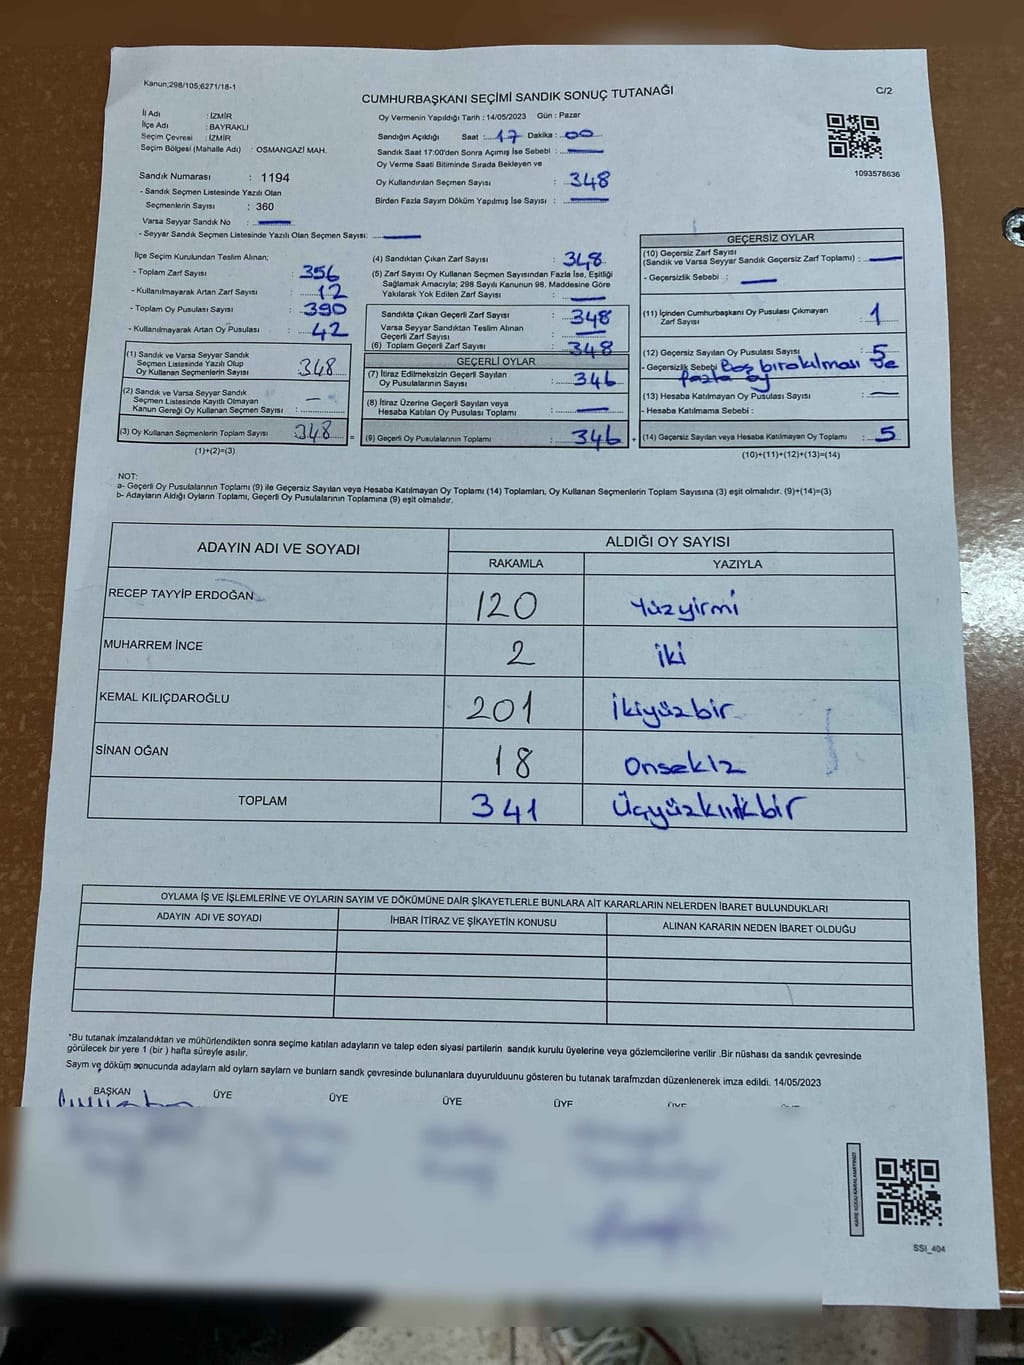 Kanun;298/105;6271/18-1
CUMHURBAŞKANI SEÇİMİ SANDIK SONUÇ TUTANAĞI
C/2
İl Adı : İZMİR
İlçe Adı : BAYRAKLI
Seçim Çevresi : İZMİR
Seçim Bölgesi (Mahalle Adı) : OSMANGAZİ MAH.
Sandık Numarası : 1194
- Sandık Seçmen Listesinde Yazılı Olan
Seçmenlerin Sayısı : 360
Varsa Seyyar Sandık No :
- Seyyar Sandık Seçmen Listesinde Yazılı Olan Seçmen Sayısı:
Oy Vermenin Yapıldığı Tarih : 14/05/2023 Gün : Pazar
Sandığın Açıldığı Saat : 17 Dakika : 00
Sandık Saat 17:00'den Sonra Açımış İse Sebebi :
Oy Verme Saati Bitiminde Sırada Bekleyen ve
Oy Kullandırılan Seçmen Sayısı : 348
Birden Fazla Sayım Döküm Yapılmış İse Sayısı :
1093578636
İlçe Seçim Kurulundan Teslim Alınan;
- Toplam Zarf Sayısı : 356
- Kullanılmayarak Artan Zarf Sayısı : 12
- Toplam Oy Pusulası Sayısı : 390
- Kullanılmayarak Artan Oy Pusulası : 42
(1) Sandık ve Varsa Seyyar Sandık
Seçmen Listesinde Yazılı Olup
Oy Kullanan Seçmenlerin Sayısı : 348
(2) Sandık ve Varsa Seyyar Sandık
Seçmen Listesinde Kayıtlı Olmayan
Kanun Gereği Oy Kullanan Seçmen Sayısı : -
(3) Oy Kullanan Seçmenlerin Toplam Sayısı 348 =
(1)+(2)=(3)
(4) Sandıktan Çıkan Zarf Sayısı : 348
(5) Zarf Sayısı Oy Kullanan Seçmen Sayısından Fazla İse, Eşitliği
Sağlamak Amacıyla; 298 Sayılı Kanunun 98. Maddesine Göre
Yakılarak Yok Edilen Zarf Sayısı :
Sandıkta Çıkan Geçerli Zarf Sayısı : 348
Varsa Seyyar Sandıktan Teslim Alınan
Geçerli Zarf Sayısı :
(6) Toplam Geçerli Zarf Sayısı : 348
GEÇERLİ OYLAR
(7) İtiraz Edilmeksizin Geçerli Sayılan
Oy Pusulalarının Sayısı : 346
(8) İtiraz Üzerine Geçerli Sayılan veya
Hesaba Katılan Oy Pusulası Toplamı :
(9) Geçerli Oy Pusulalarının Toplamı : 346 +
GEÇERSİZ OYLAR
(10) Geçersiz Zarf Sayısı
(Sandık ve Varsa Seyyar Sandık Geçersiz Zarf Toplamı) :
- Geçersizlik Sebebi :
(11) İçinden Cumhurbaşkanı Oy Pusulası Çıkmayan
Zarf Sayısı : 1
(12) Geçersiz Sayılan Oy Pusulası Sayısı : 5
- Geçersizlik Sebebi Boş bırakılması ve
fazla oy
(13) Hesaba Katılmayan Oy Pusulası Sayısı :
- Hesaba Katılmama Sebebi :
(14) Geçersiz Sayılan veya Hesaba Katılmayan Oy Toplamı : 5
(10)+(11)+(12)+(13)=(14)
NOT:
a- Geçerli Oy Pusulalarının Toplamı (9) ile Geçersiz Sayılan veya Hesaba Katılmayan Oy Toplamı (14) Toplamları, Oy Kullanan Seçmenlerin Toplam Sayısına (3) eşit olmalıdır. (9)+(14)=(3)
b- Adayların Aldığı Oyların Toplamı, Geçerli Oy Pusulalarının Toplamına (9) eşit olmalıdır.
ADAYIN ADI VE SOYADI
ALDIĞI OY SAYISI
RAKAMLA YAZIYLA
RECEP TAYYİP ERDOĞAN 120 Yüzyirmi
MUHARREM İNCE 2 iki
KEMAL KILIÇDAROĞLU 201 İkiyüzbir
SİNAN OĞAN 18 Onsekiz
TOPLAM 341 Üçyüzkırkbir
OYLAMA İŞ VE İŞLEMLERİNE VE OYLARIN SAYIM VE DÖKÜMÜNE DAİR ŞİKAYETLERLE BUNLARA AİT KARARLARIN NELERDEN İBARET BULUNDUKLARI
ADAYIN ADI VE SOYADI İHBAR İTİRAZ VE ŞİKAYETİN KONUSU ALINAN KARARIN NEDEN İBARET OLDUĞU
*Bu tutanak imzalandıktan ve mühürlendikten sonra seçime katılan adayların ve talep eden siyasi partilerin sandık kurulu üyelerine veya gözlemcilerine verilir .Bir nüshası da sandık çevresinde
görülecek bir yere 1 (bir ) hafta süreyle asılır.
Sayım ve döküm sonucunda adayların ald oyların sayıları ve bunların sandk çevresinde bulunanlara duyurulduunu gösteren bu tutanak tarafmzdan düzenlenerek imza edildi. 14/05/2023
BAŞKAN ÜYE ÜYE ÜYE ÜYE
SSI_404